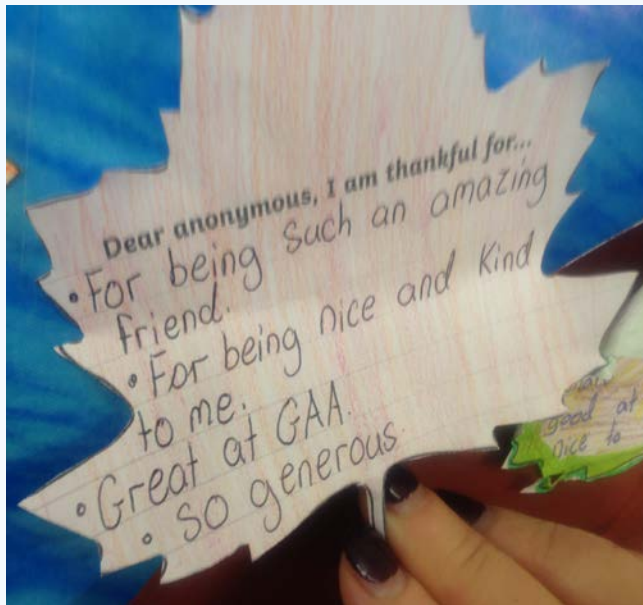 Dear anonymous, I am thankful for...
• For being such an amazing
friend.
• For being nice and kind
to me.
• Great at GAA.
• so generous.
good at
nice to